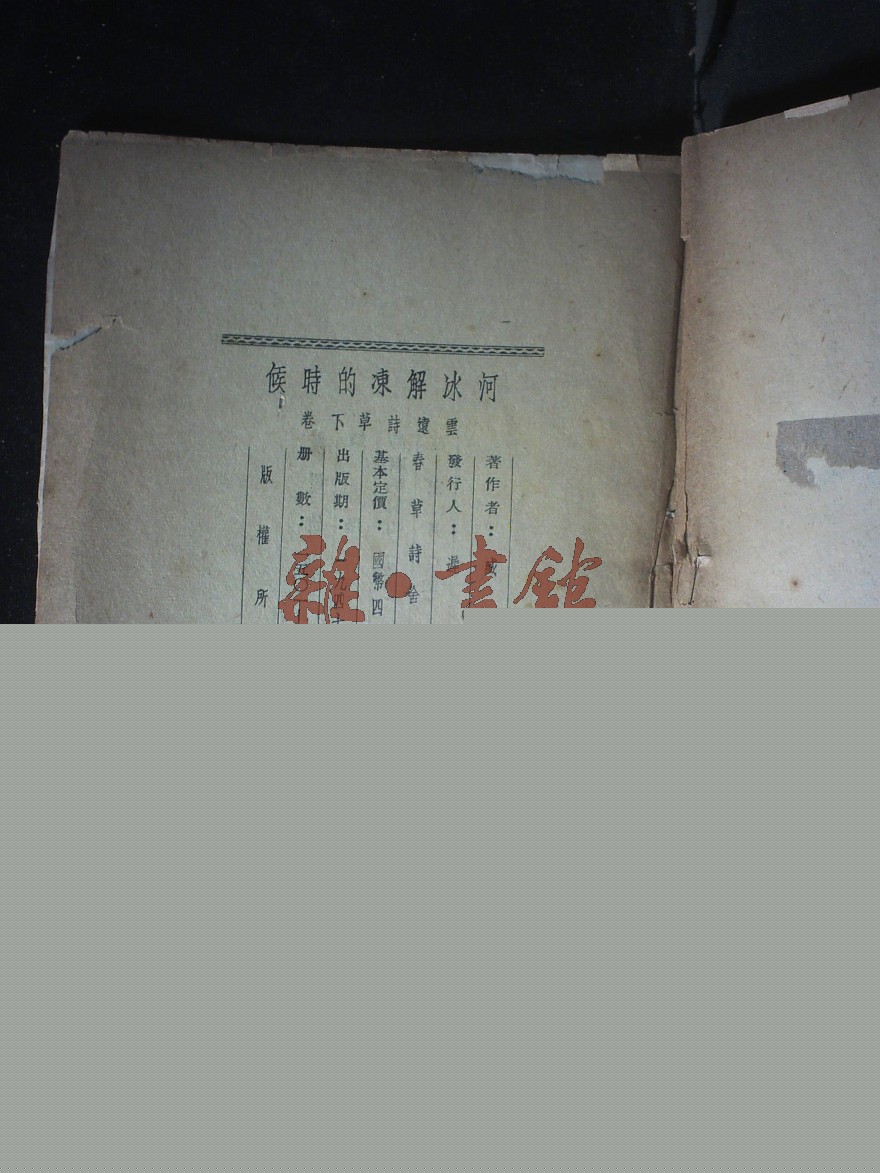 河冰解凍的時候
雲遠詩草下卷
著作者：
發行人：
春草詩舍
基本定價：國幣四
出版期：一九四
冊數：
版權所
雜·書館